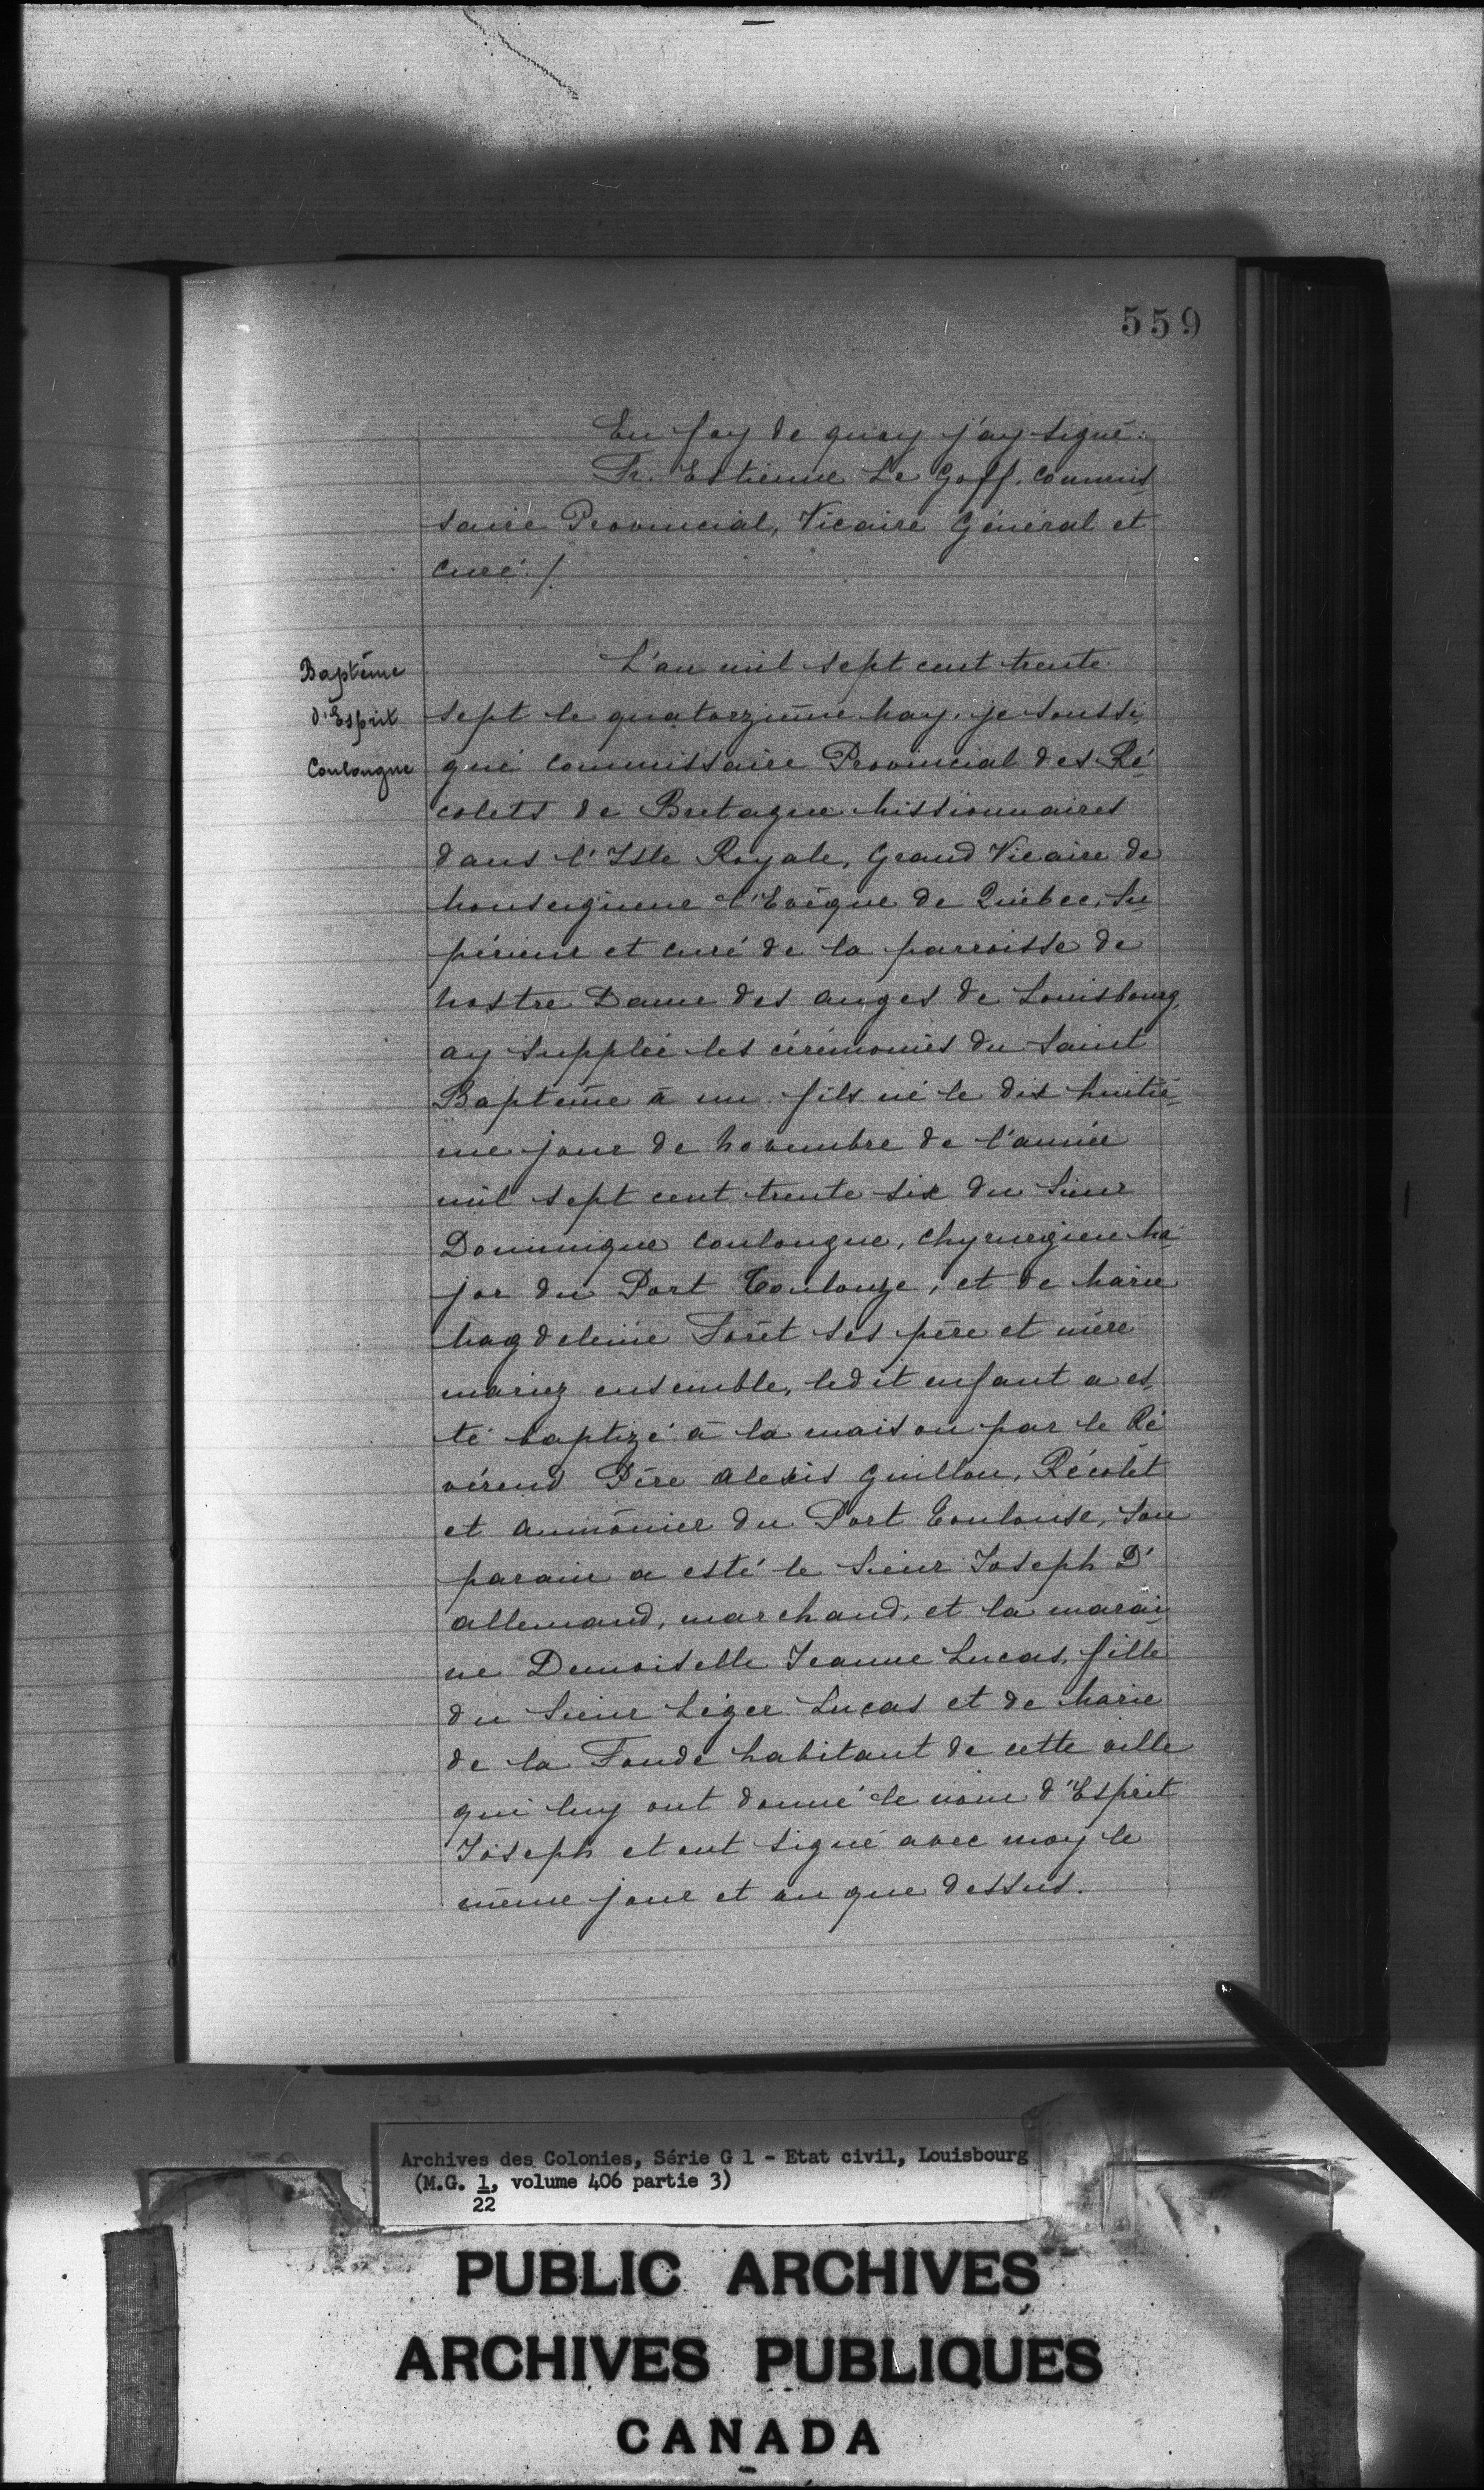 559
En foy de quoy j'ay signé:
Fr. Estienne Le Goff. Commis-
saire Provincial, Vicaire Général et
curé./.
Baptême
d'Esprit
Coulongue
L'an mil sept cent trente
sept le quatorzième May, je soussi-
gné Commissaire Provincial des Ré-
colets de Bretagne Missionnaires
dans l'Isle Royale, Grand Vicaire de
Monseigneur l'Evêque de Québec, Su-
périeur et curé de la parroisse de
Nostre Dame des anges de Louisbourg,
ay supplée les cérémonies du Saint
Baptême à un fils né le dix huitiè-
me jour de Novembre de l'année
mil sept cent trente six du Sieur
Dominique Coulongue, Chyrurgien Ma-
jor du Port Toulouze, et de Marie
Magdeleine Forêt ses père et mère
mariez ensemble, ledit enfant a es-
té baptizé à la maison par le Ré
vérend Père Alexis Guillou, Récolet
et Aumônier du Port Toulouse, Son
parain a esté le Sieur Joseph D'
allemand, marchand, et la marai-
ne Demoiselle Jeanne Lucas, fille
du Sieur Léger Lucas et de Marie
de la Fonde habitant de cette ville
qui luy ont donné le nom d'Esprit
Joseph et ont signé avec moy le
même jour et an que dessus.
Archives des Colonies, Série G 1 - Etat civil, Louisbourg
(M.G. 1, volume 406 partie 3)
22
PUBLIC ARCHIVES
ARCHIVES PUBLIQUES
CANADA